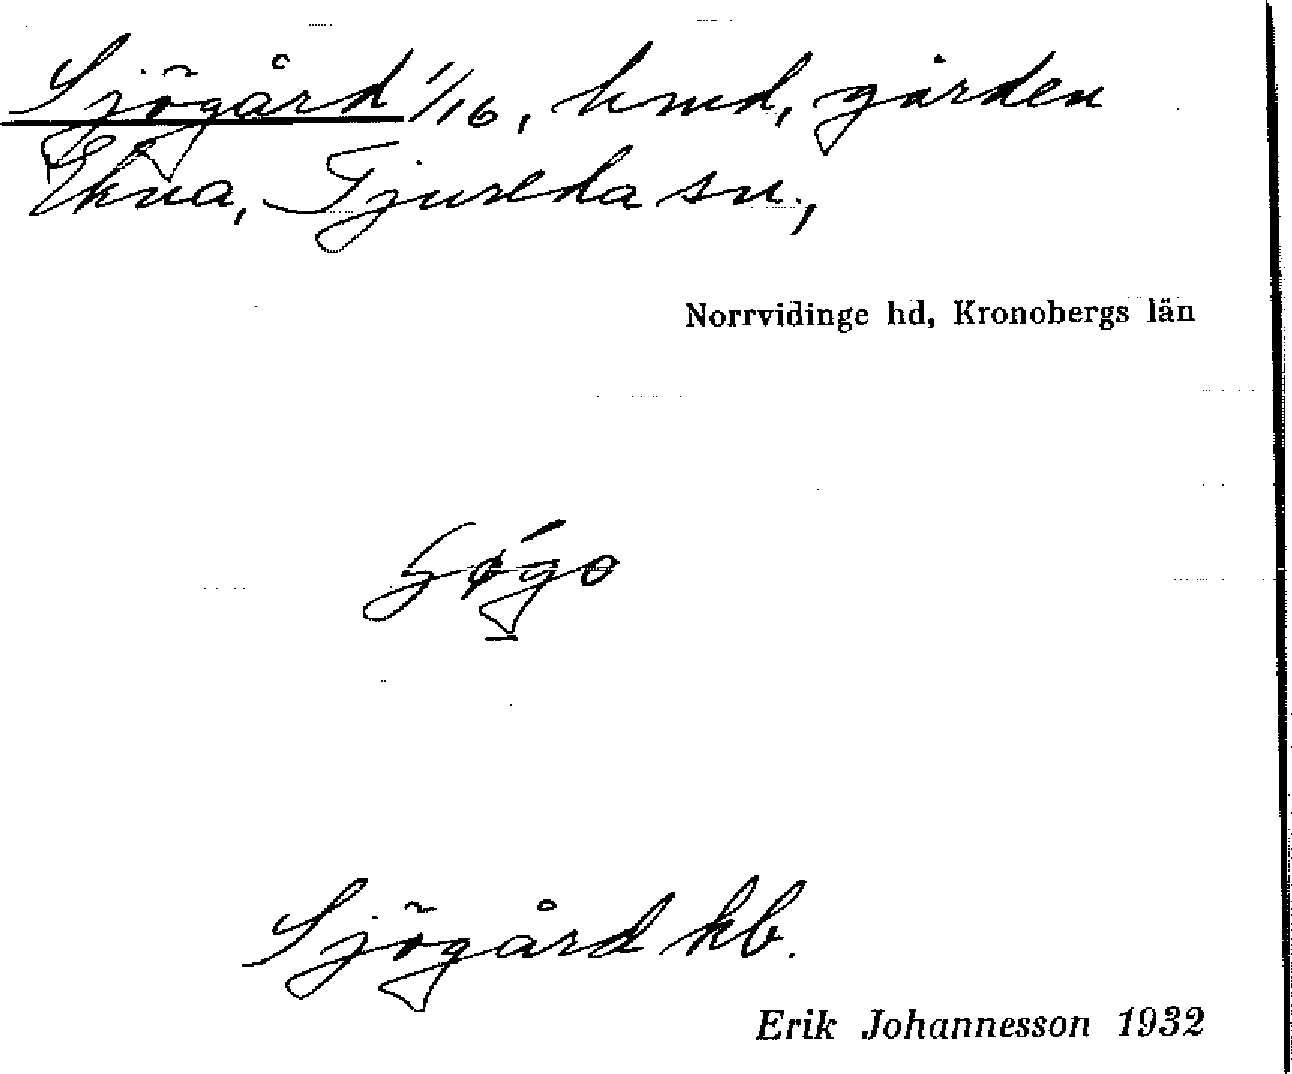 Sjögård 1/16, hmd, gården
Ekna, Tjureda sn.,
Norrvidinge hd, Kronobergs län
Sjögård kb.
Erik Johannesson 1932